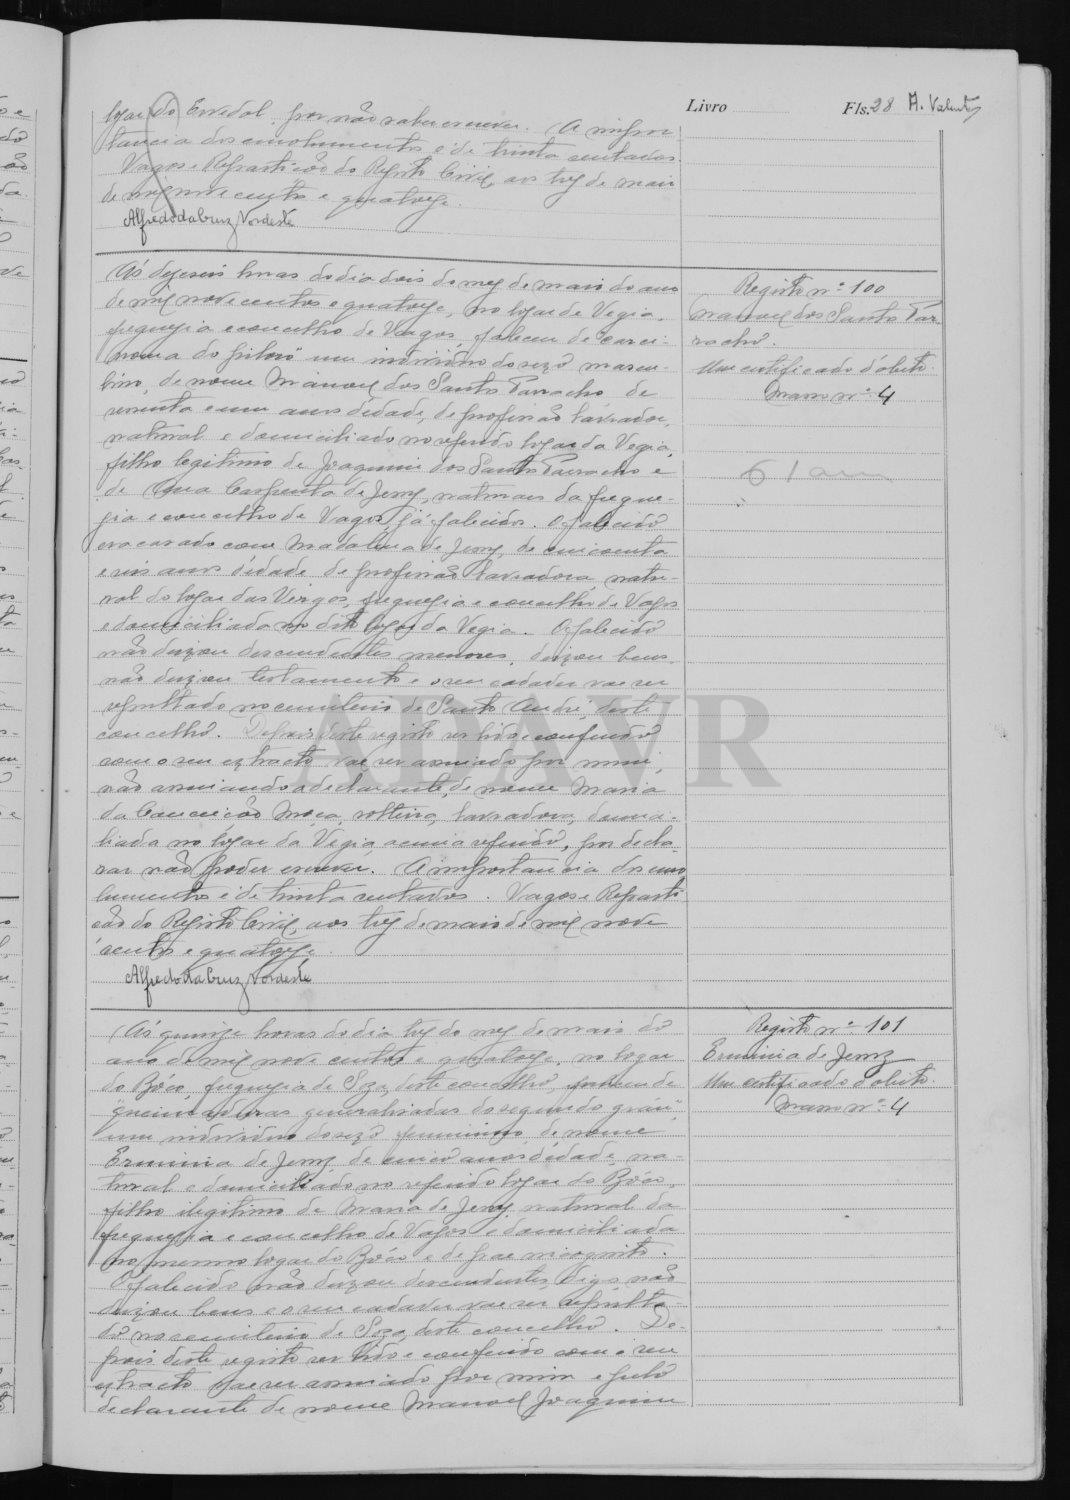 Livro Fls. 28 A. Valente
logar do Esvedal, por não saber escrever. A impor
tancia dos emolumentos é de trinta centavos.
Vagos e Repartição do Registo Civil, aos tres de maio
de mil nove centos e quatorze.
Alfredo da Cruz Nordeste
Ás dezeseis horas do dia dois do mez de maio do ano
de mil nove centos e quatorze, no logar de Vegia,
freguezia e concelho de Vagos, faleceu de carci-
noma do piloro um individuo do sexo mascu-
lino, de nome Manoel dos Santos Parracho, de
sessenta e um anos d'edade, de profissão lavrador,
natural e domiciliado no referido logar da Vegia,
filho legitimo de Joaquim dos Santos Parracho e
de Ana Carpenta de Jesus, naturaes da fregue-
zia e concelho de Vagos, já falecidos. O falecido
era casado com Madalena de Jesus, de cincoenta
e seis anos d'edade, de profissão lavradora, natu-
ral do logar das Vergas, freguezia e concelho de Vagos
e domiciliada no dito logar da Vegia. O falecido
não deixou descendentes menores, deixou bens,
não deixou testamento e o seu cadaver vae ser
sepultado no cemiterio de Santo André, deste
concelho. Depois deste registo ser lido e conferido
com o seu extracto vae ser assinado por mim,
não assinando a declarante, de nome Maria
da Conceição Moça, solteira, lavradora, domici-
liada no logar da Vegia acima referido, por decla-
rar não poder escrever. A importancia dos emo
lumentos é de trinta centavos. Vagos e Reparti
ção do Registo Civil, aos tres de maio de mil nove
centos e quatorze.
Alfredo da Cruz Nordeste
Registo nº 100
Manoel dos Santos Par-
racho.
Um certificado d'obito.
Masso nº 4
61 anos
Ás quinze horas do dia tres do mez de maio do
ano de mil nove centos e quatorze, no logar
do Bóco, freguezia de Soza, deste concelho, faleceu de
"queimaduras generalisadas do segundo gráu",
um individuo do sexo feminino, de nome
Erminia de Jesus, de cinco anos d'edade, na-
tural e domiciliado no referido logar do Bóco,
filho ilegitimo de Maria de Jesus, natural da
freguezia e concelho de Vagos e domiciliada
no mesmo logar do Bóco e de pae incognito.
O falecido não deixou descendentes, digo, não
deixou bens e o seu cadaver vae ser sepulta-
do no cemiterio de Soza, deste concelho. De-
pois deste registo ser lido e conferido com o seu
extracto vae ser assinado por mim e pelo
declarante de nome Manoel Joaquim
Registo nº 101
Erminia de Jesus
Um certificado d'obito.
Masso nº 4
ADAVR